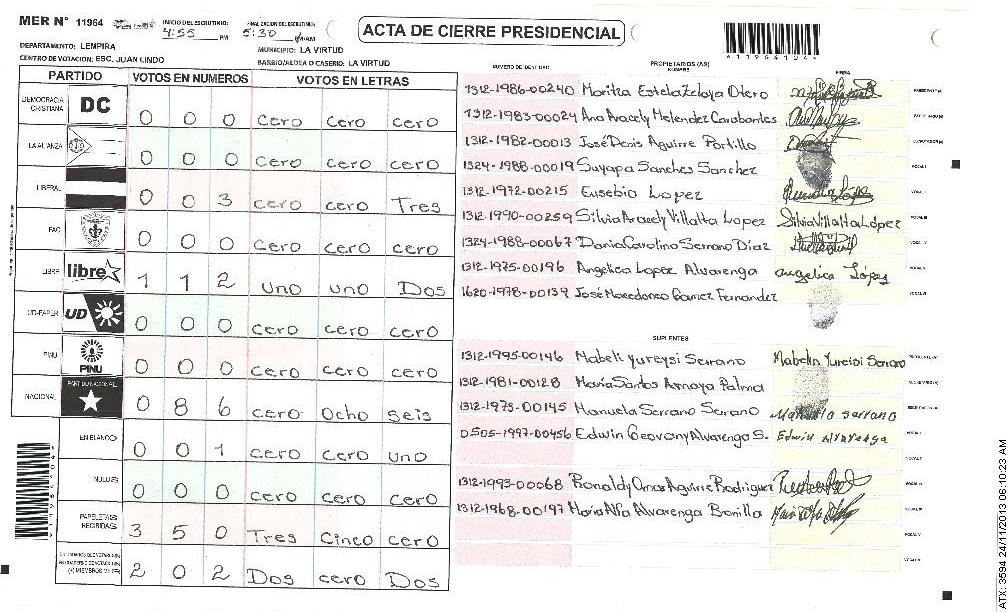 MER Nº 11964
INICIO DEL ESCRUTINIO: 4:55 PM
FINALIZACION DEL ESCRUTINIO: 5:30 PM/AM
ACTA DE CIERRE PRESIDENCIAL
DEPARTAMENTO: LEMPIRA
MUNICIPIO: LA VIRTUD
CENTRO DE VOTACION: ESC. JUAN LINDO
BARRIO/ALDEA O CASERIO: LA VIRTUD
PARTIDO VOTOS EN NUMEROS VOTOS EN LETRAS
DEMOCRACIA CRISTIANA DC 0 0 0 cero cero cero
LA ALIANZA 0 0 0 cero cero cero
LIBERAL 0 0 3 cero cero Tres
PAC 0 0 0 cero cero cero
LIBRE libre 1 1 2 uno uno Dos
UD-FAPER UD 0 0 0 cero cero cero
PINU PINU 0 0 0 cero cero cero
NACIONAL PARTIDO NACIONAL 0 8 6 cero Ocho seis
EN BLANCO 0 0 1 cero cero uno
NULOS 0 0 0 cero cero cero
PAPELETAS RECIBIDAS 3 5 0 Tres Cinco cero
(+) MIEMBROS MER 2 0 2 Dos cero Dos
NUMERO DE IDENTIDAD PROPIETARIOS (AS) NOMBRE FIRMA
1312-1986-00240 Maritza Estela Zelaya Otero PRESIDENTE (A)
1312-1983-00024 Ana Aracely Melendez Carabantes SECRETARIO (A)
1312-1982-00013 José Denis Aguirre Portillo ESCRUTADOR (A)
1324-1988-00019 Suyapa Sanches Sanchez VOCAL I
1312-1972-00215 Eusebio Lopez
1312-1990-00259 Silvia Aracely Villalta Lopez Silvia Villalta López VOCAL III
1324-1988-00067 Dania Carolina Serrano Díaz
1312-1975-00196 Angelica Lopez Alvarenga angelica López VOCAL V
1620-1978-00139 José Macedonio Gamez Fernandez VOCAL VI
SUPLENTES
1312-1995-00146 Mabeli yureysi Serrano Mabelin Yureisi Serrano PRESIDENTE (A)
1312-1981-00128 María Santos Amaya Palma SECRETARIO (A)
1312-1973-00145 Manuela Serrano Serrano Manuela Serrano ESCRUTADOR (A)
0505-1997-00456 Edwin Geovany Alvarenga S. Edwin Alvarenga VOCAL I
VOCAL II
1312-1993-00068 Ronaldy Omar Aguirre Rodriguez
1312-1968-00197 Maria Alfa Alvarenga Bonilla
VOCAL V
VOCAL VI
ATX: 3594 24/11/2013 06:10:23 AM